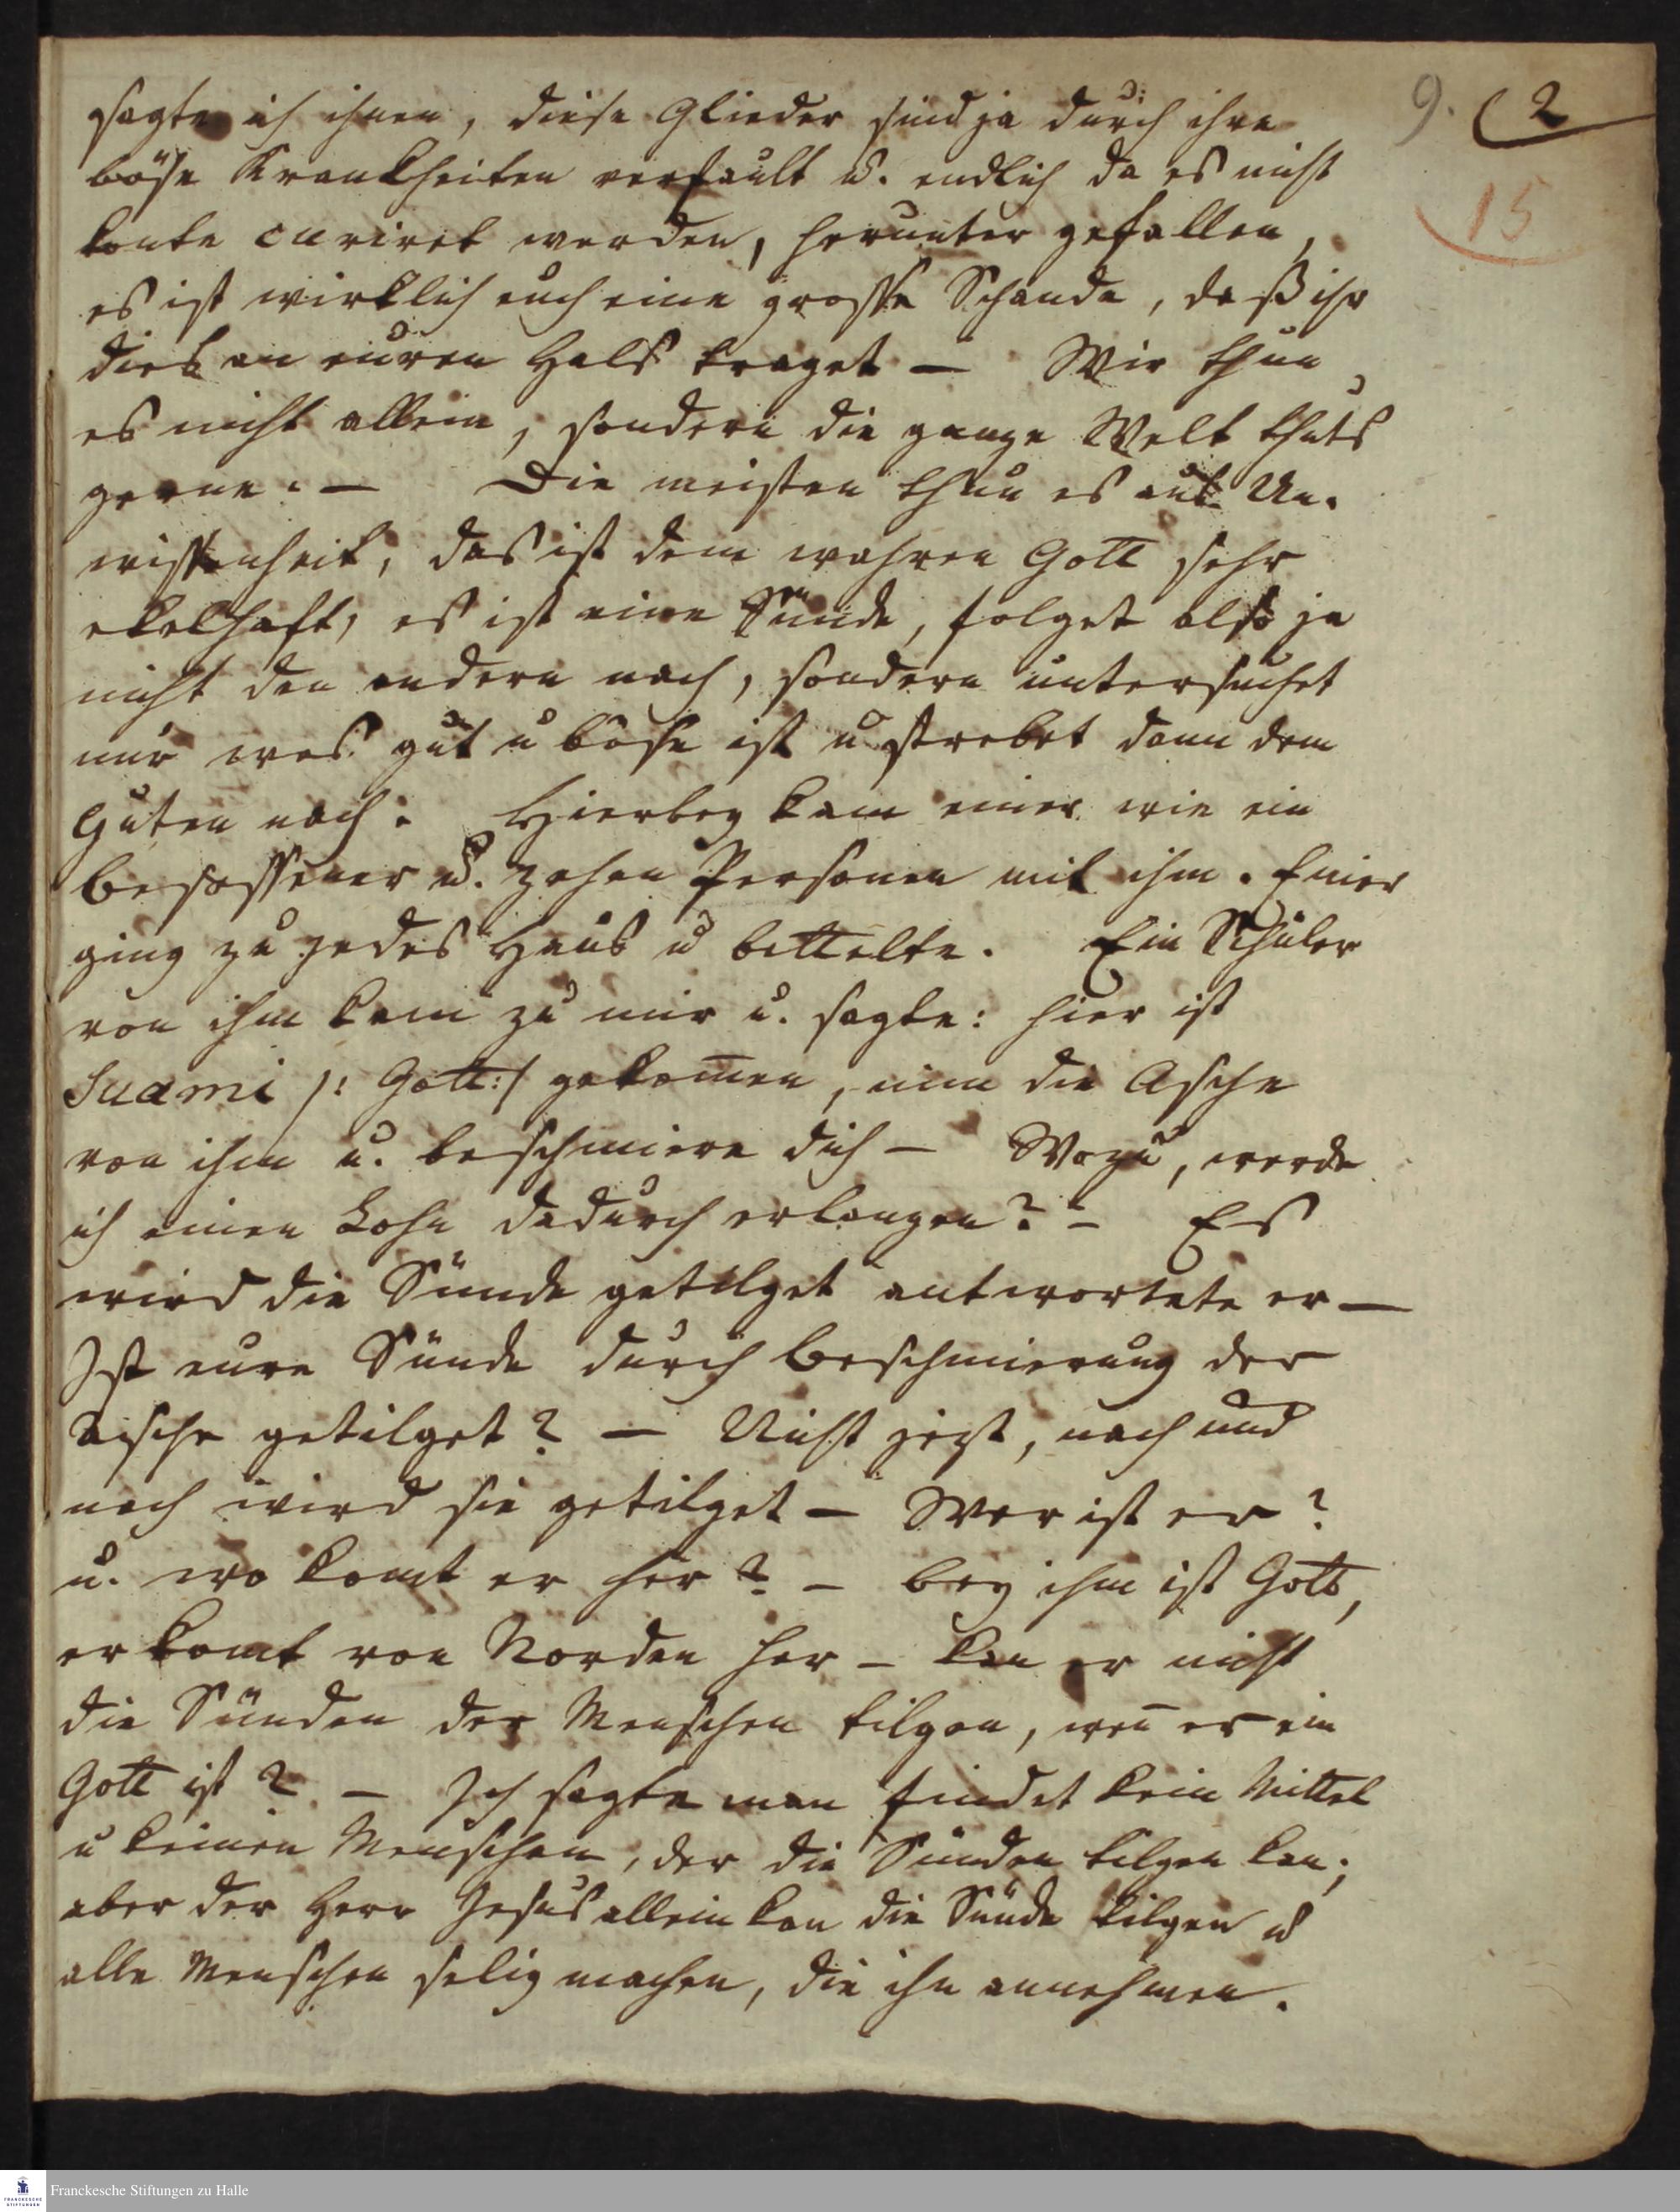 9. 2
15
sagte ich ihnen, diese Glieder sind ja durch ihre
böse Krankheiten verfault u. endlich da es nicht
konte curiret werden, herunter gefallen,
es ist wirklich euch eine grosse Schande, daß ihr
dies an euren Hals traget — Wir thun
es nicht allein, sondern die ganze Welt thuts
gerne. — Die meisten thun es aus Un-
wissenheit, das ist dem wahren Gott sehr
ekelhaft, es ist eine Sünde, folget also ja
nicht den andern nach, sondern untersuchet
nur was gut u böse ist u strebet dann dem
Guten nach. Hierbey kam einer wie ein
besessener u. zehen Personen mit ihm. Einer
ging zu jedes Haus u bettelte. Ein Schüler
von ihm kam zu mir u. sagte: hier ist
Suami /: Gott :/ gekom̄en, nim die Asche
von ihm u. beschmiere dich — Wozu, werde
ich einen Lohn dadurch erlangen? — Es
wird die Sünde getilget antwortete er —
Ist eure Sünde durch Beschmierung der
Asche getilget? — Nicht jezt, nach und
nach wird sie getilget — Wer ist er?
u. wo komt er her? — bey ihm ist Gott,
er komt von Norden her — kan er nicht
die Sünden der Menschen tilgen, wen̄ er ein
Gott ist? — Ich sagte man findet kein Mittel
u keinen Menschen, der die Sünden tilgen kan;
aber der Herr Jesus allein kan die Sünde tilgen u
alle Menschen selig machen, die ihn annehmen.
FRANCKESCHE STIFTUNGEN
Franckesche Stiftungen zu Halle